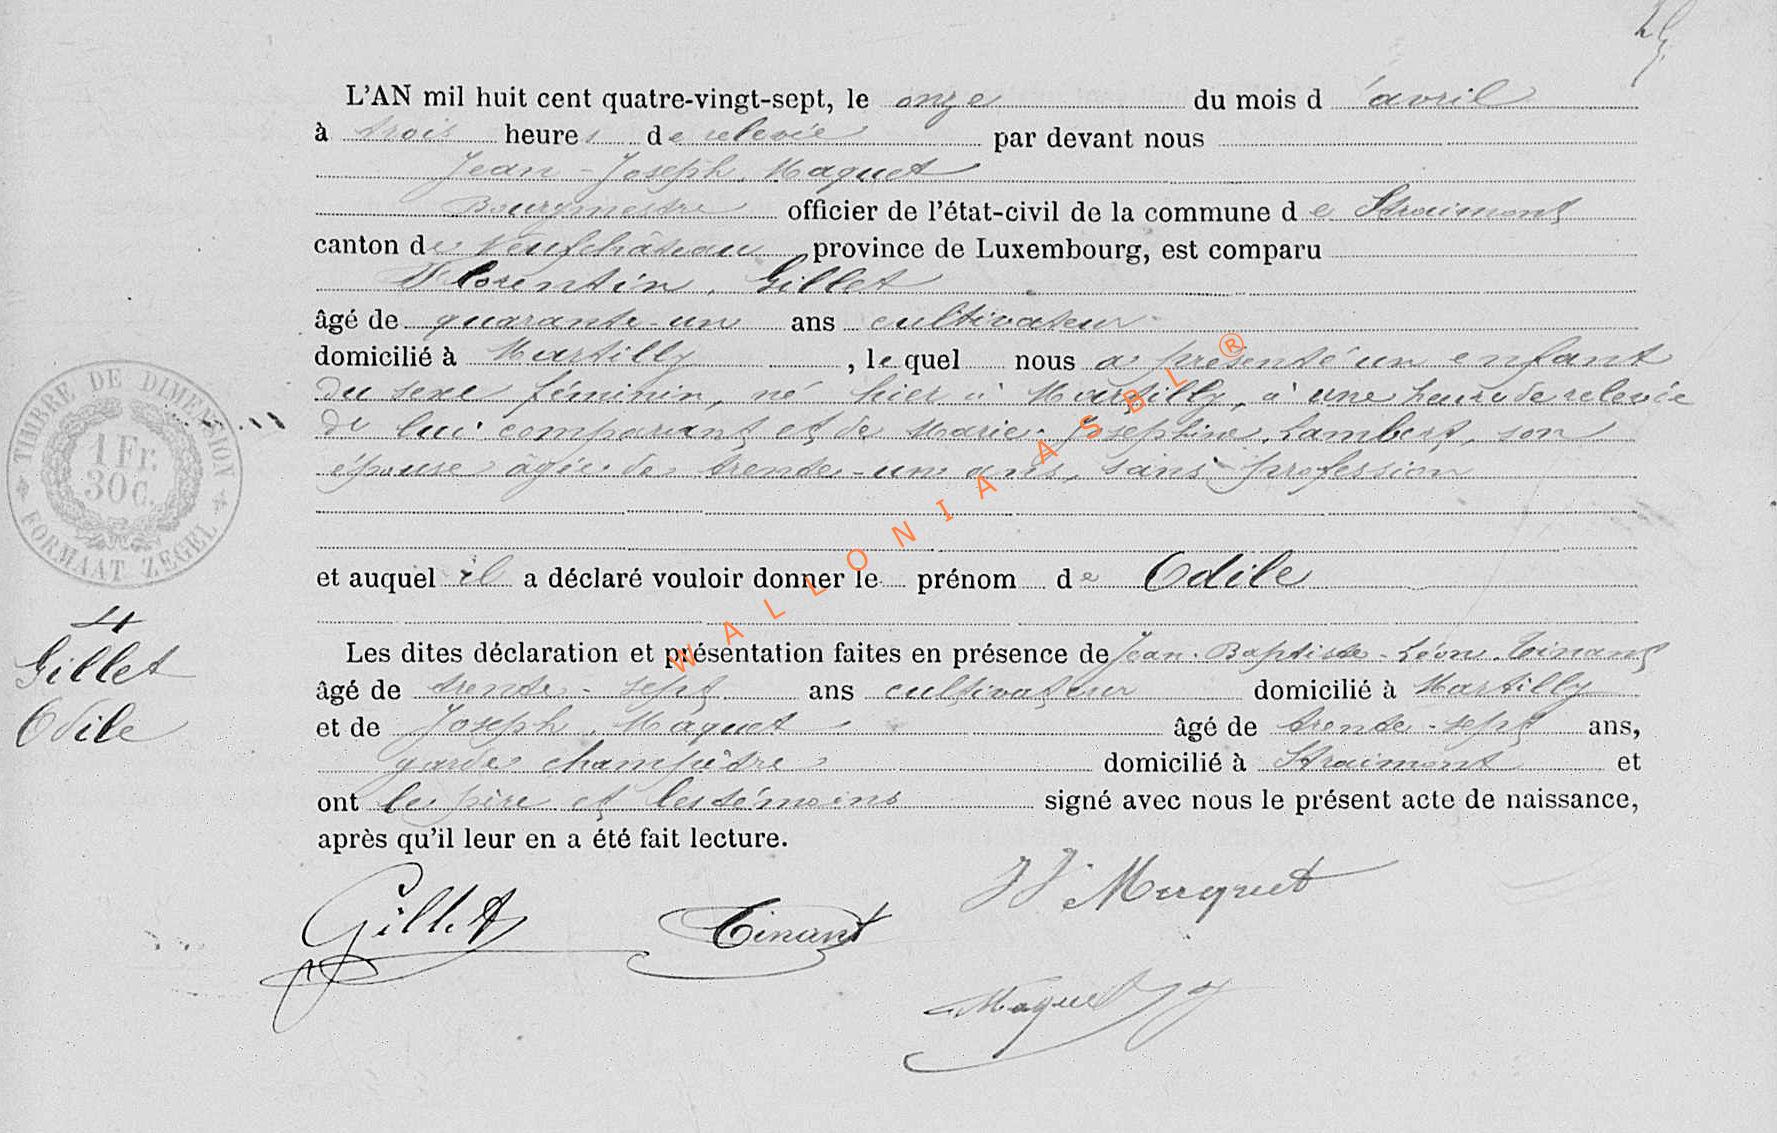 L'AN mil huit cent quatre-vingt-sept, le onze du mois d'avril
à trois heures de relevée par devant nous
Jean-Joseph Maquet
Bourgmestre officier de l'état-civil de la commune de Straimont
canton de Neufchâteau province de Luxembourg, est comparu
Florentin Gillet
âgé de quarante-un ans cultivateur
domicilié à Martilly, lequel nous a présenté un enfant
du sexe féminin, né hier à Martilly, à une heure de relevée
de lui comparant et de Marie-Josephine Lambert, son
épouse âgée de trente-un ans, sans profession
et auquel il a déclaré vouloir donner le prénom de Odile
Les dites déclaration et présentation faites en présence de Jean-Baptiste-Léon Tinant
âgé de trente-sept ans cultivateur domicilié à Martilly
et de Joseph Maquet âgé de trente-sept ans,
garde champêtre domicilié à Straimont et
ont le père et les témoins signé avec nous le présent acte de naissance,
après qu'il leur en a été fait lecture.
Gillet Tinant JJ Maquet
Maquet
TIMBRE DE DIMENSION
1 Fr.
30 C.
FORMAAT ZEGEL
4
Gillet
Odile
WALLONIA ASBL ®